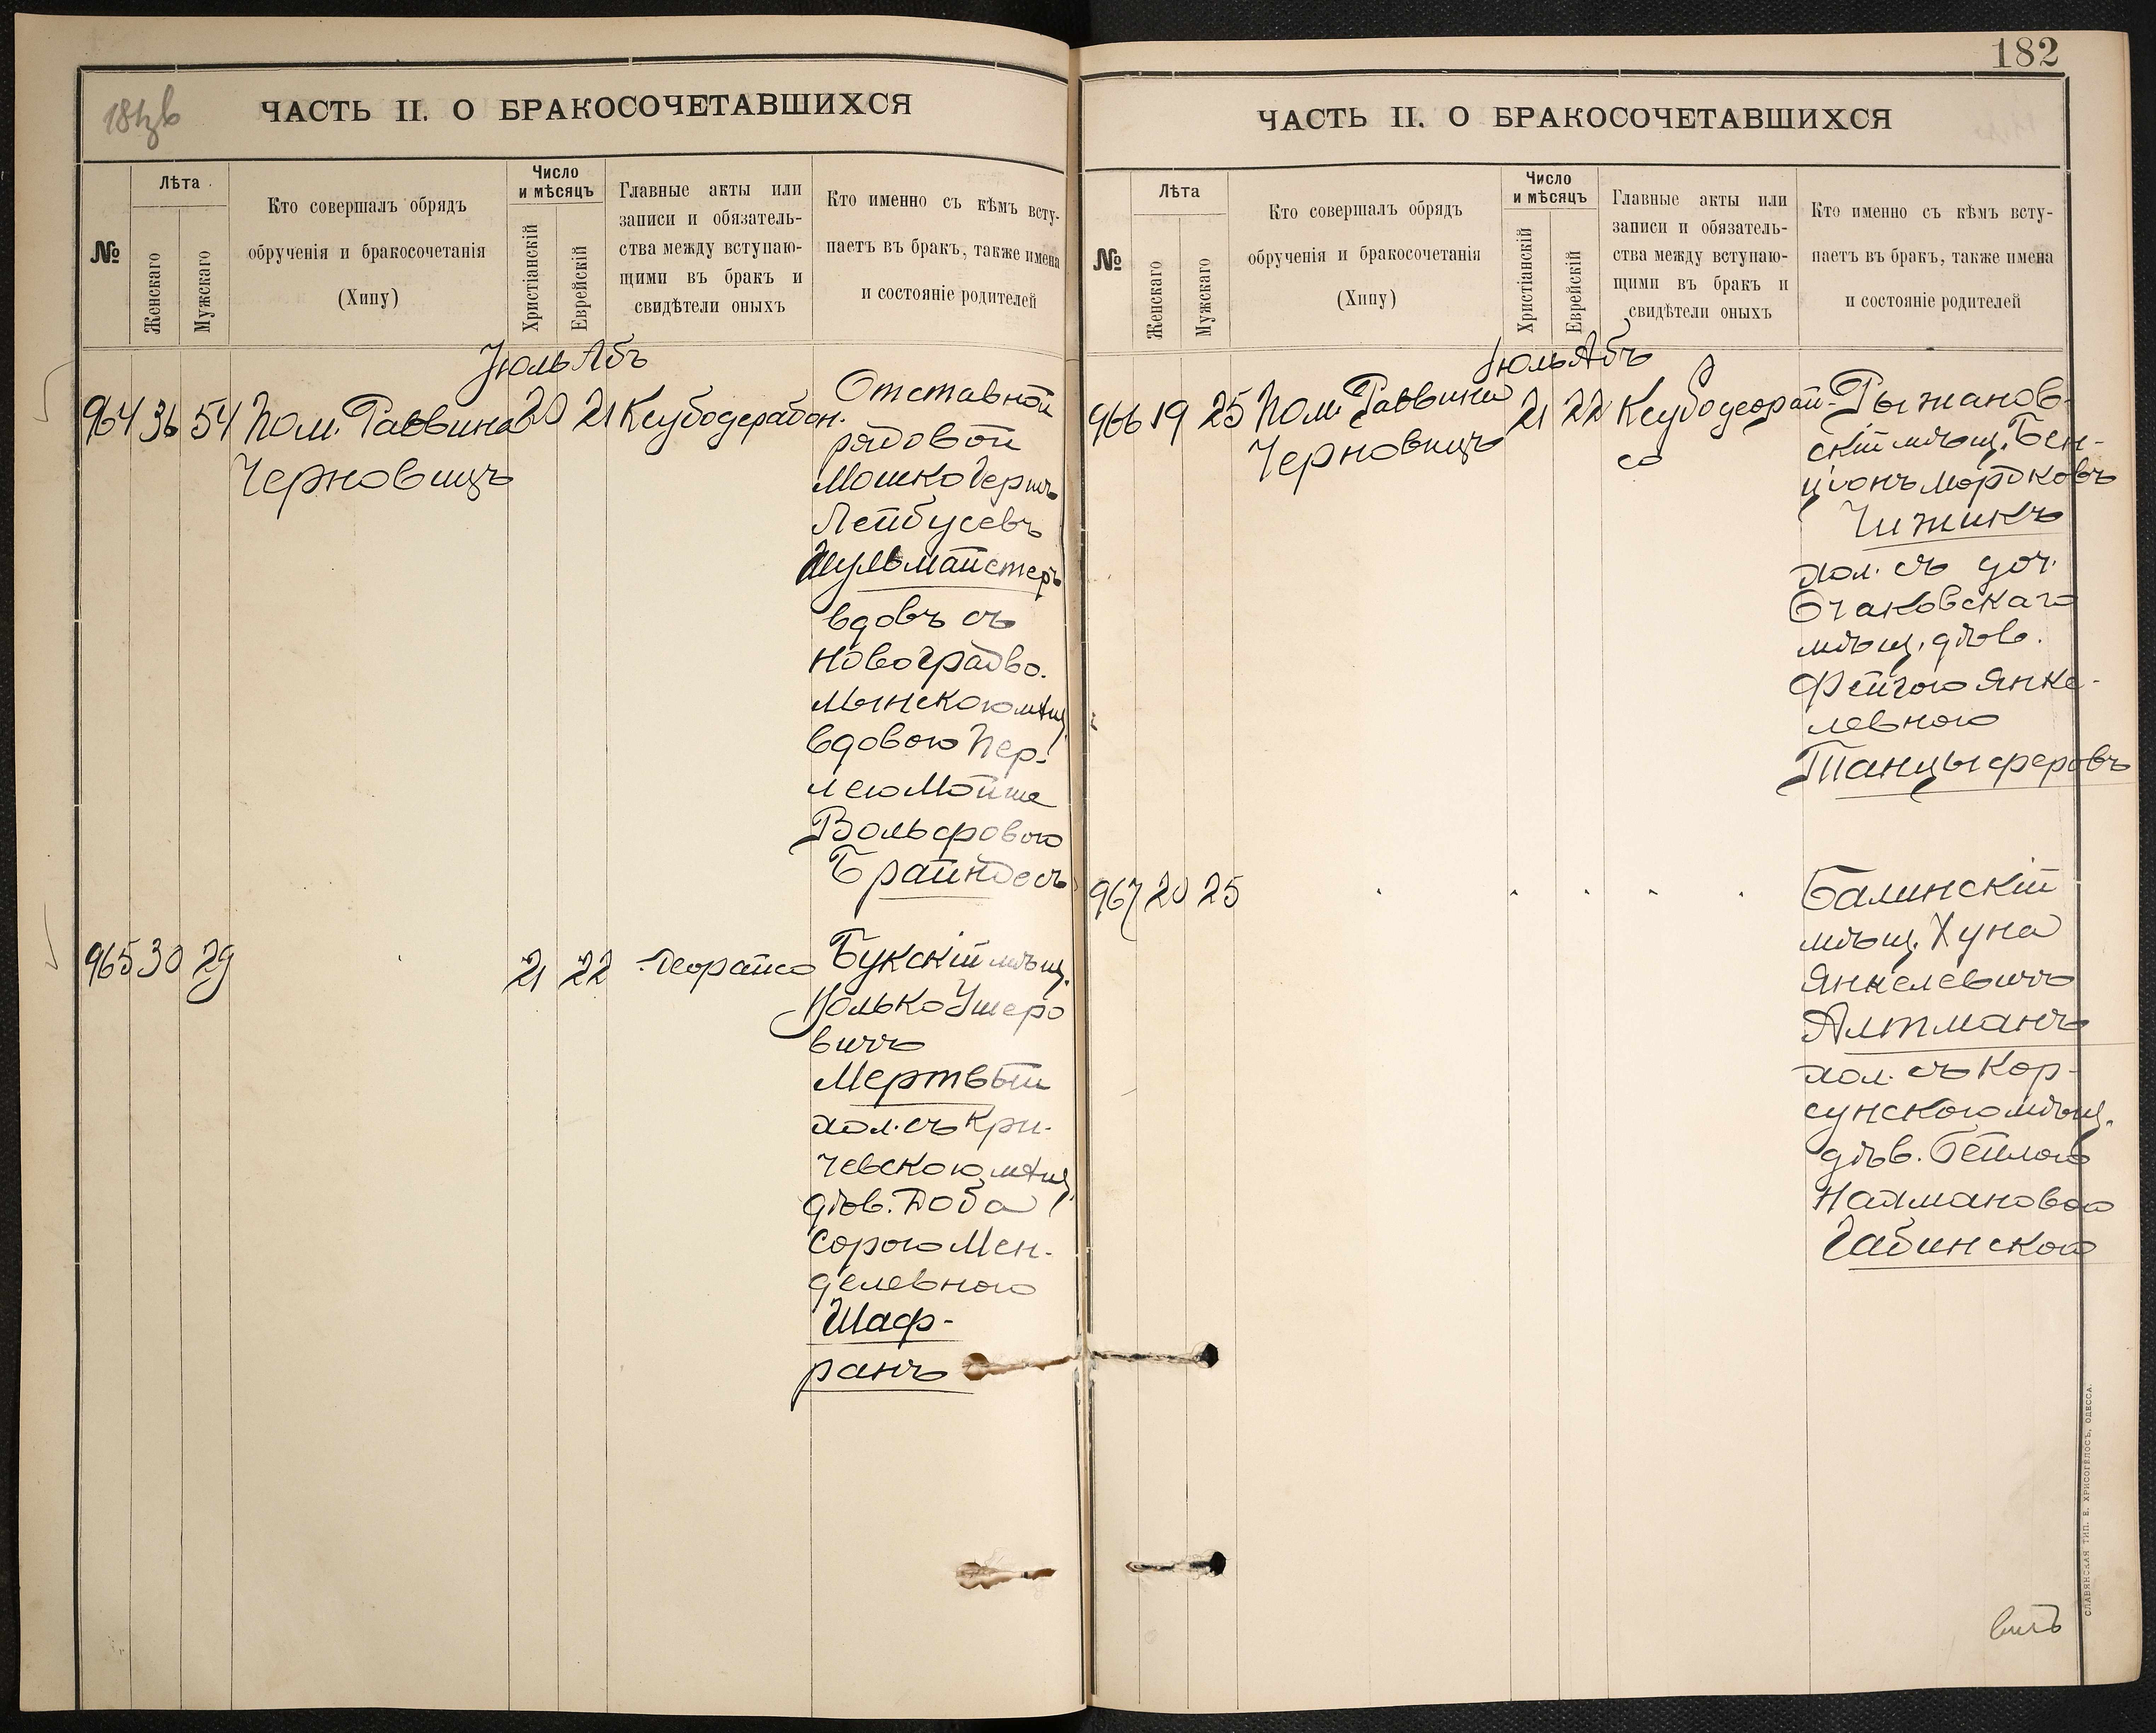 ЧАСТЬ II. О БРАКОСОЧЕТАВШИХСЯ
№
Лѣта
Женскаго
Мужскаго
Кто совершалъ обрядъ
обрученія и бракосочетанія
(Хипу)
Число
и мѣсяцъ
Христіанскій
Еврейскій
Главные акты или
записи и обязатель-
ства между вступаю-
щими въ бракъ и
свидѣтели оныхъ
Кто именно съ кѣмъ всту-
паетъ въ бракъ, также имена
и состояніе родителей
Іюль Абъ
964 36 54 Пом. Раввина 20 21 Ксубодерабон.
Черновицъ
Отставной
рядовой
Мошко Герш
Лейбусевъ
Шульмайстеръ
вдовъ съ
Новоградво-
лынскою мѣщ.
вдовою Пер-
лею Мойше
Вольфовою
Брайндесъ
965 30 29 21 22 -Деорайсо
Букскій мѣщ.
Волько Ушеро
вичъ
Мертвый
хол. съ Кри-
чевскою мѣщ.
дѣв. Доба
Сорою Мен-
делевною
Шаф-
ранъ
182
ЧАСТЬ II. О БРАКОСОЧЕТАВШИХСЯ
№
Лѣта
Женскаго
Мужскаго
Кто совершалъ обрядъ
обрученія и бракосочетанія
(Хипу)
Число
и мѣсяцъ
Христіанскій
Еврейскій
Главные акты или
записи и обязатель-
ства между вступаю-
щими въ бракъ и
свидѣтели оныхъ
Кто именно съ кѣмъ всту-
паетъ въ бракъ, также имена
и состояніе родителей
Іюль Абъ
966 19 25 Пом. Раввина 21 22 Ксубодеорай-
Черновицъ
со
Рыжанов-
скій мѣщ. Бен-
ціонъ Мордковъ
Чижикъ
хол. съ доч.
Очаковскаго
мѣщ. дѣв.
Фейгою Янке-
левною
Танцыферовъ
967 20 25
Балинскій
мѣщ. Хуна
Янкелевичъ
Алтманъ
хол. съ Кор-
сунскою мѣщ.
дѣв. Бейлою
Наймановою
Габинскою
СЛАВЯНСКАЯ ТИП. Е. ХРИСОГЕЛОСЪ, ОДЕССА.